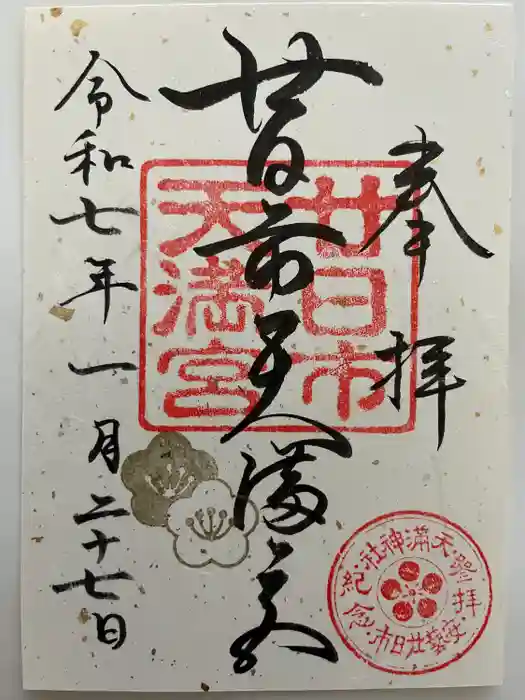 奉拝
廿日市天満宮
令和七年一月二十七日
廿日市
天満宮
天満神社
參拝
紀念
安藝廿日市